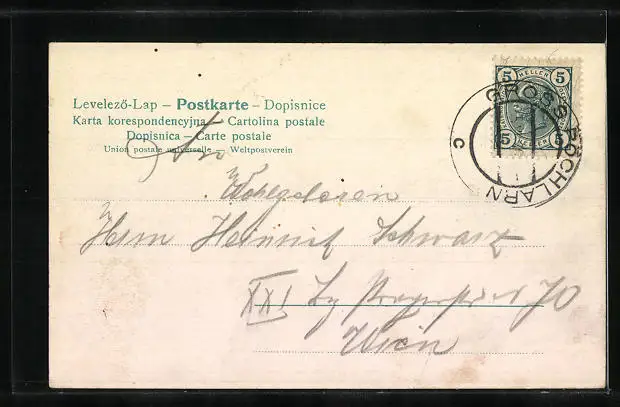 Levelező-Lap – Postkarte – Dopisnice
Karta korespondencyjna – Cartolina postale
Dopisnica – Carte postale
Union postale universelle – Weltpostverein
5 HELLER 5
5 5
GROSS PÖCHLARN
C
Wohlgeboren
Herrn Heinrich Schwarz
XXI 70
Wien